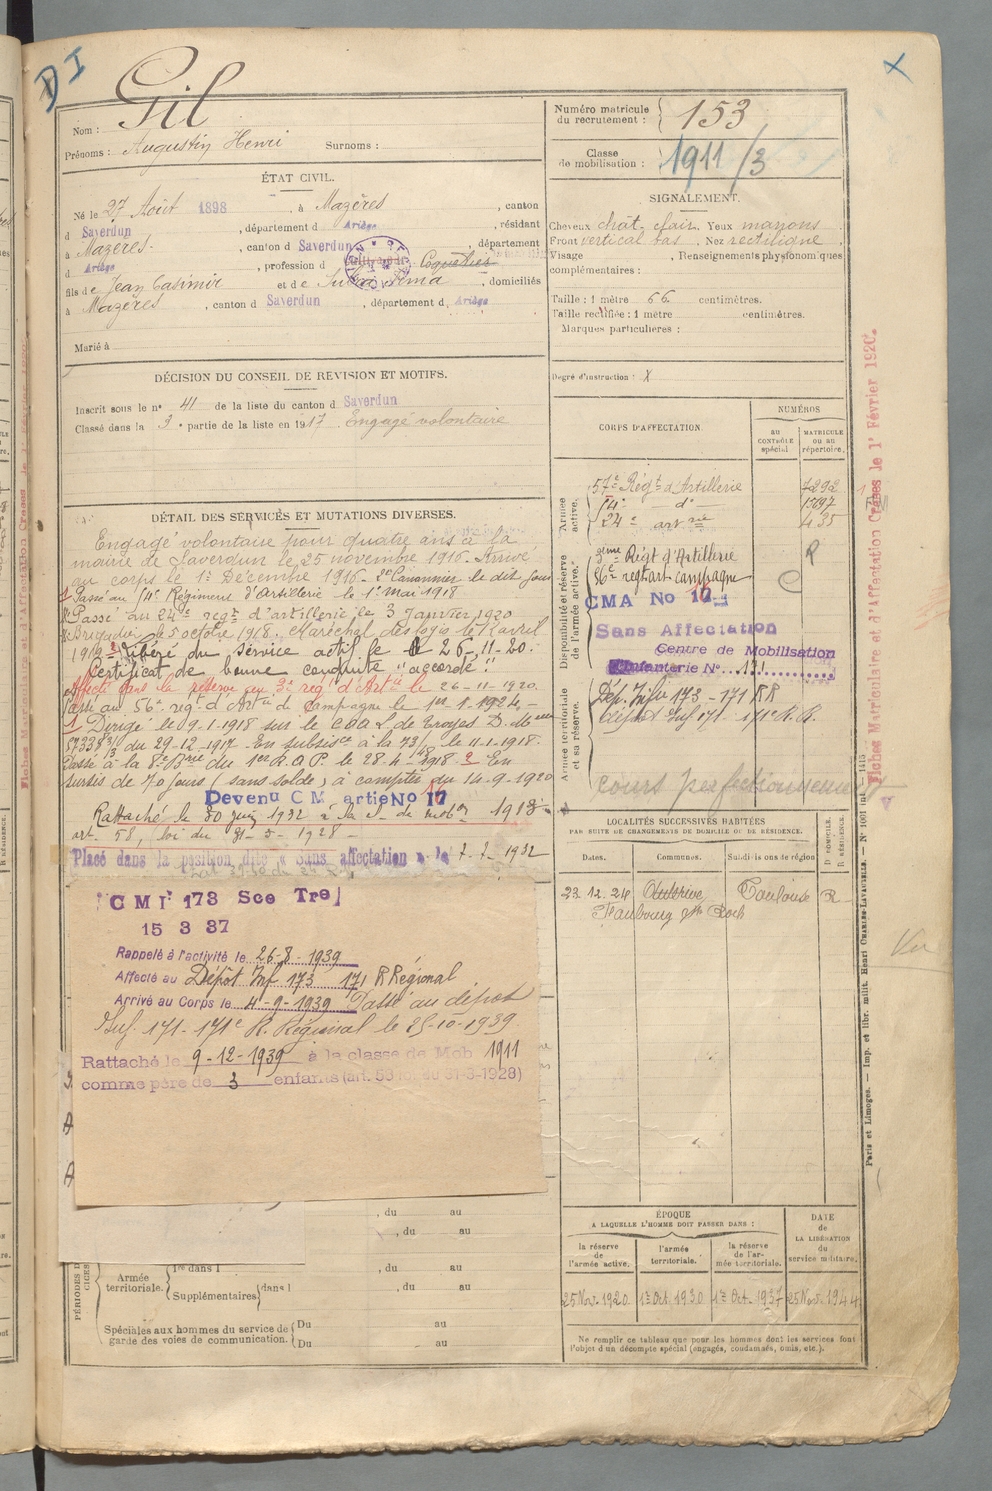 DI
X
Nom : Gil
Prénoms : Augustin Henri Surnoms :
Numéro matricule du recrutement : 153
Classe de mobilisation : 1911/3
ÉTAT CIVIL.
Né le 27 Août 1898, à Mazères, canton
d Saverdun, département d Ariège, résidant
à Mazères, canton d Saverdun, département
d Ariège, profession d Coquetier
fils de Jean Casimir et de, domiciliés
à Mazères, canton d Saverdun, département d Ariège
Marié à
SIGNALEMENT.
Cheveux chat. clair Yeux marrons
Front vertical bas. Nez rectiligne
Visage, Renseignements physionomiques
complémentaires :
Taille : 1 mètre 66 centimètres.
Taille rectifiée : 1 mètre centimètres.
Marques particulières :
Degré d'instruction : X
DÉCISION DU CONSEIL DE REVISION ET MOTIFS.
Inscrit sous le n° 41 de la liste du canton d Saverdun
Classé dans la 3e partie de la liste en 1917. Engagé volontaire
DÉTAIL DES SERVICES ET MUTATIONS DIVERSES.
Engagé volontaire pour quatre ans à la
mairie de Saverdun le 25 novembre 1916. Arrivé
au corps le 1er Décembre 1916. 2e Canonnier le dit jour
Passé au 14e Régiment d'Artillerie le 1er mai 1918
Passé au 24e regt d'artillerie le 3 Janvier 1920
Brigadier le 5 octobre 1918. Maréchal des logis le 11 avril
1919 Libéré du service actif le 26-11-20.
Certificat de bonne conduite "accordé"
Affecté dans la réserve au 3e regt d'Artie le 26-11-1920.
Passé au 56e regt d'Artie de campagne le 1er-1-1924
Dirigé le 09-1-1918 sur le C.O.A.L. de Troyes D. M
du 29-12-1917. En subsistce à la 73/ le 11-1-1918.
Passé à la 8e Brie du 1er R.A.P. le 28-4-1918. En
sursis de 70 jours (sans solde) à compter du 14-9-1920
Devenu C M artie No 17
Rattaché le 30 juin 1932 à la cl. de mobon 1913
art. 58, loi du 31-3-1928
Placé dans la position dite « Sans affectation » le 7-7-1932
CMI 173 Sce Tre
15 3 37
Rappelé à l'activité le 26-8-1939
Affecté au Dépôt Inf 173 171 R Régional
Arrivé au Corps le 4-9-1939 Passé au dépôt
Inf. 171-171e R. Régional le 25-10-1939
Rattaché le 9-12-1939 à la classe de Mob 1911
comme père de 3 enfants (art. 58 loi du 31-3-1928)
, du au
, du au
1re dans l, du au
Armée territoriale. Supplémentaires dans l, du au
Spéciales aux hommes du service de garde des voies de communication. Du au
Du au
CORPS D'AFFECTATION.
NUMÉROS
AU CONTRÔLE spécial
MATRICULE OU AU répertoire.
Armée active.
57e Régt d'Artillerie 7292
14e do
24e artrie 435
Disponibilité et réserve de l'armée active.
3ème Régt d'Artillerie R
56e regt art campagne C
CMA No 17
Sans Affectation
Centre de Mobilisation
d'Infanterie N° 171
Armée territoriale et sa réserve.
Dép. Infie 173-171 RR
dépôt Inf 171-171e R.R.
Cours perfectionnement
LOCALITÉS SUCCESSIVES HABITÉES
PAR SUITE DE CHANGEMENTS DE DOMICILE OU DE RÉSIDENCE.
Dates. Communes. Subdivisions de région D DOMICILE. R RÉSIDENCE.
23.12.24 Auterive Toulouse R
Faubourg St Roch
ÉPOQUE
A LAQUELLE L'HOMME DOIT PASSER DANS :
DATE de LA LIBÉRATION du service militaire.
la réserve de l'armée active. l'armée territoriale. la réserve de l'armée territoriale.
25 Nov. 1920. 1er Oct 1930 1er Oct. 1937 25 Nov. 1944
Ne remplir ce tableau que pour les hommes dont les services font
l'objet d'un décompte spécial (engagés, condamnés, omis, etc.).
Fiches Matriculaire et d'Affectation Créées le 1er Février 1920.
Paris et Limoges. — Imp. et libr. milit. Henri CHARLES-LAVAUZELLE.